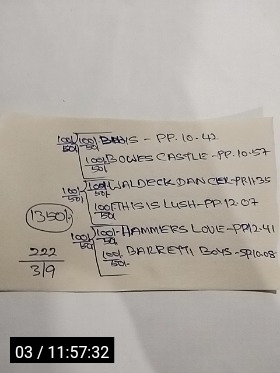 100/50 100/50 BOYS - PP.10.42
100/50 BOWES CASTLE - PP.10.57
100/50 100/50 WALDECK DANCER - PP11.35
100/50 THIS IS LUSH - PP 12.07
1350/-
100/50 100/- 50/- HAMMERS LOVE - PP12.41
222
3/9
100/- 50/- BARRETTI BOYS - SP10.08
03 / 11:57:32